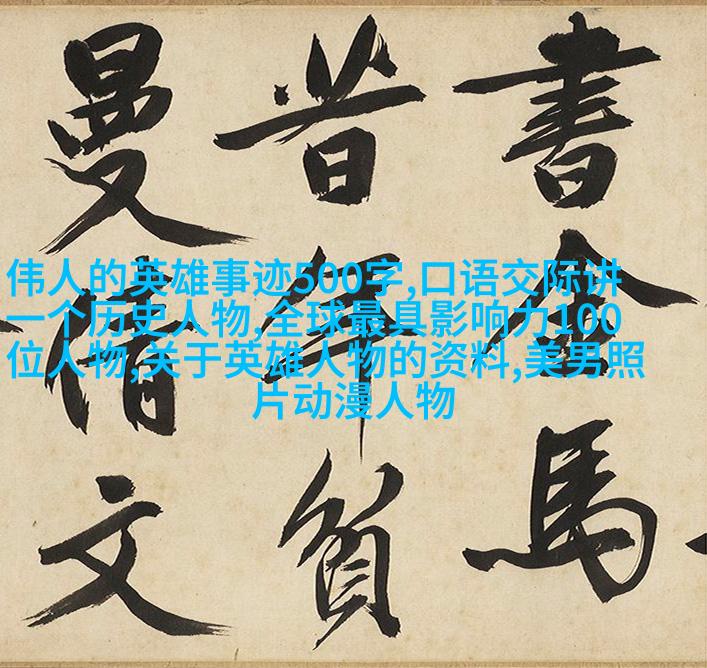 書金馬
昔年貧
曼倩文
伟人的英雄事迹500字,口语交际讲
一个历史人物,全球最具影响力100
位人物,关于英雄人物的资料,美男照
片动漫人物